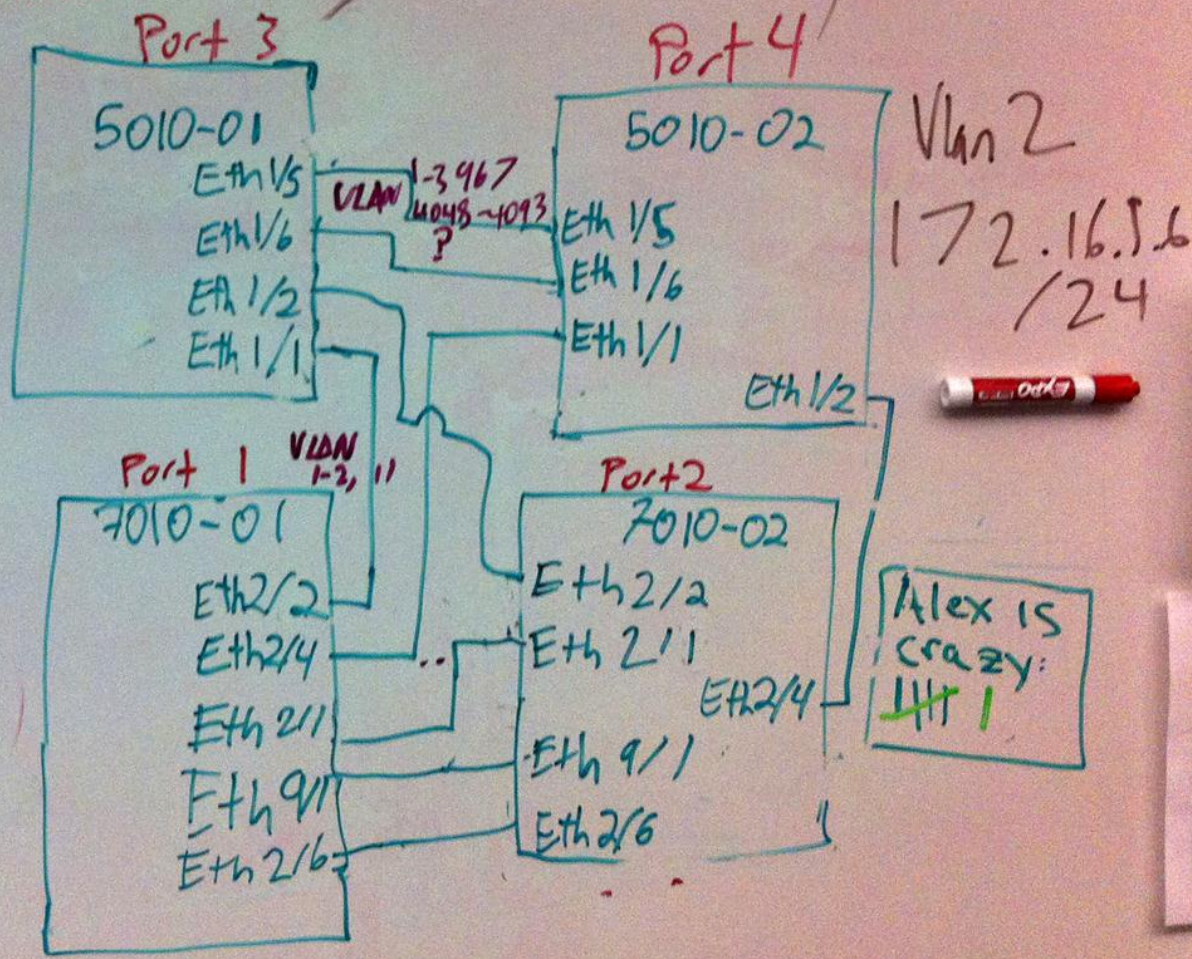 Port 3
5010-01
Eth 1/5
Eth 1/6
Eth 1/2
Eth 1/1
VLAN 1-3967
4048-4093
?
Port 4
5010-02
Eth 1/5
Eth 1/6
Eth 1/1
Eth 1/2
Vlan 2
172.16.5.6
/24
EXPO
Port 1
7010-01
VLAN
1-2, 11
Eth2/2
Eth2/4
Eth 2/1
Eth 9/1
Eth 2/6
Port2
7010-02
Eth 2/2
Eth 2/1
Eth2/4
Eth 9/1
Eth 2/6
Alex is
crazy: